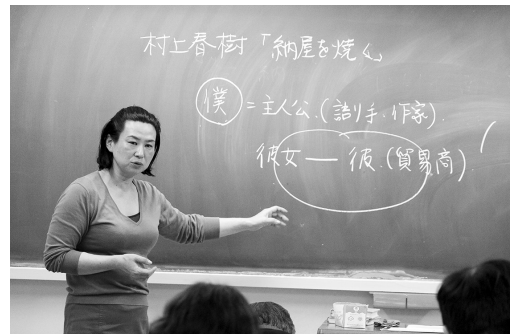 村上春樹「納屋を焼く」
僕=主人公.(語り手、作家).
彼女ー彼.(貿易商)